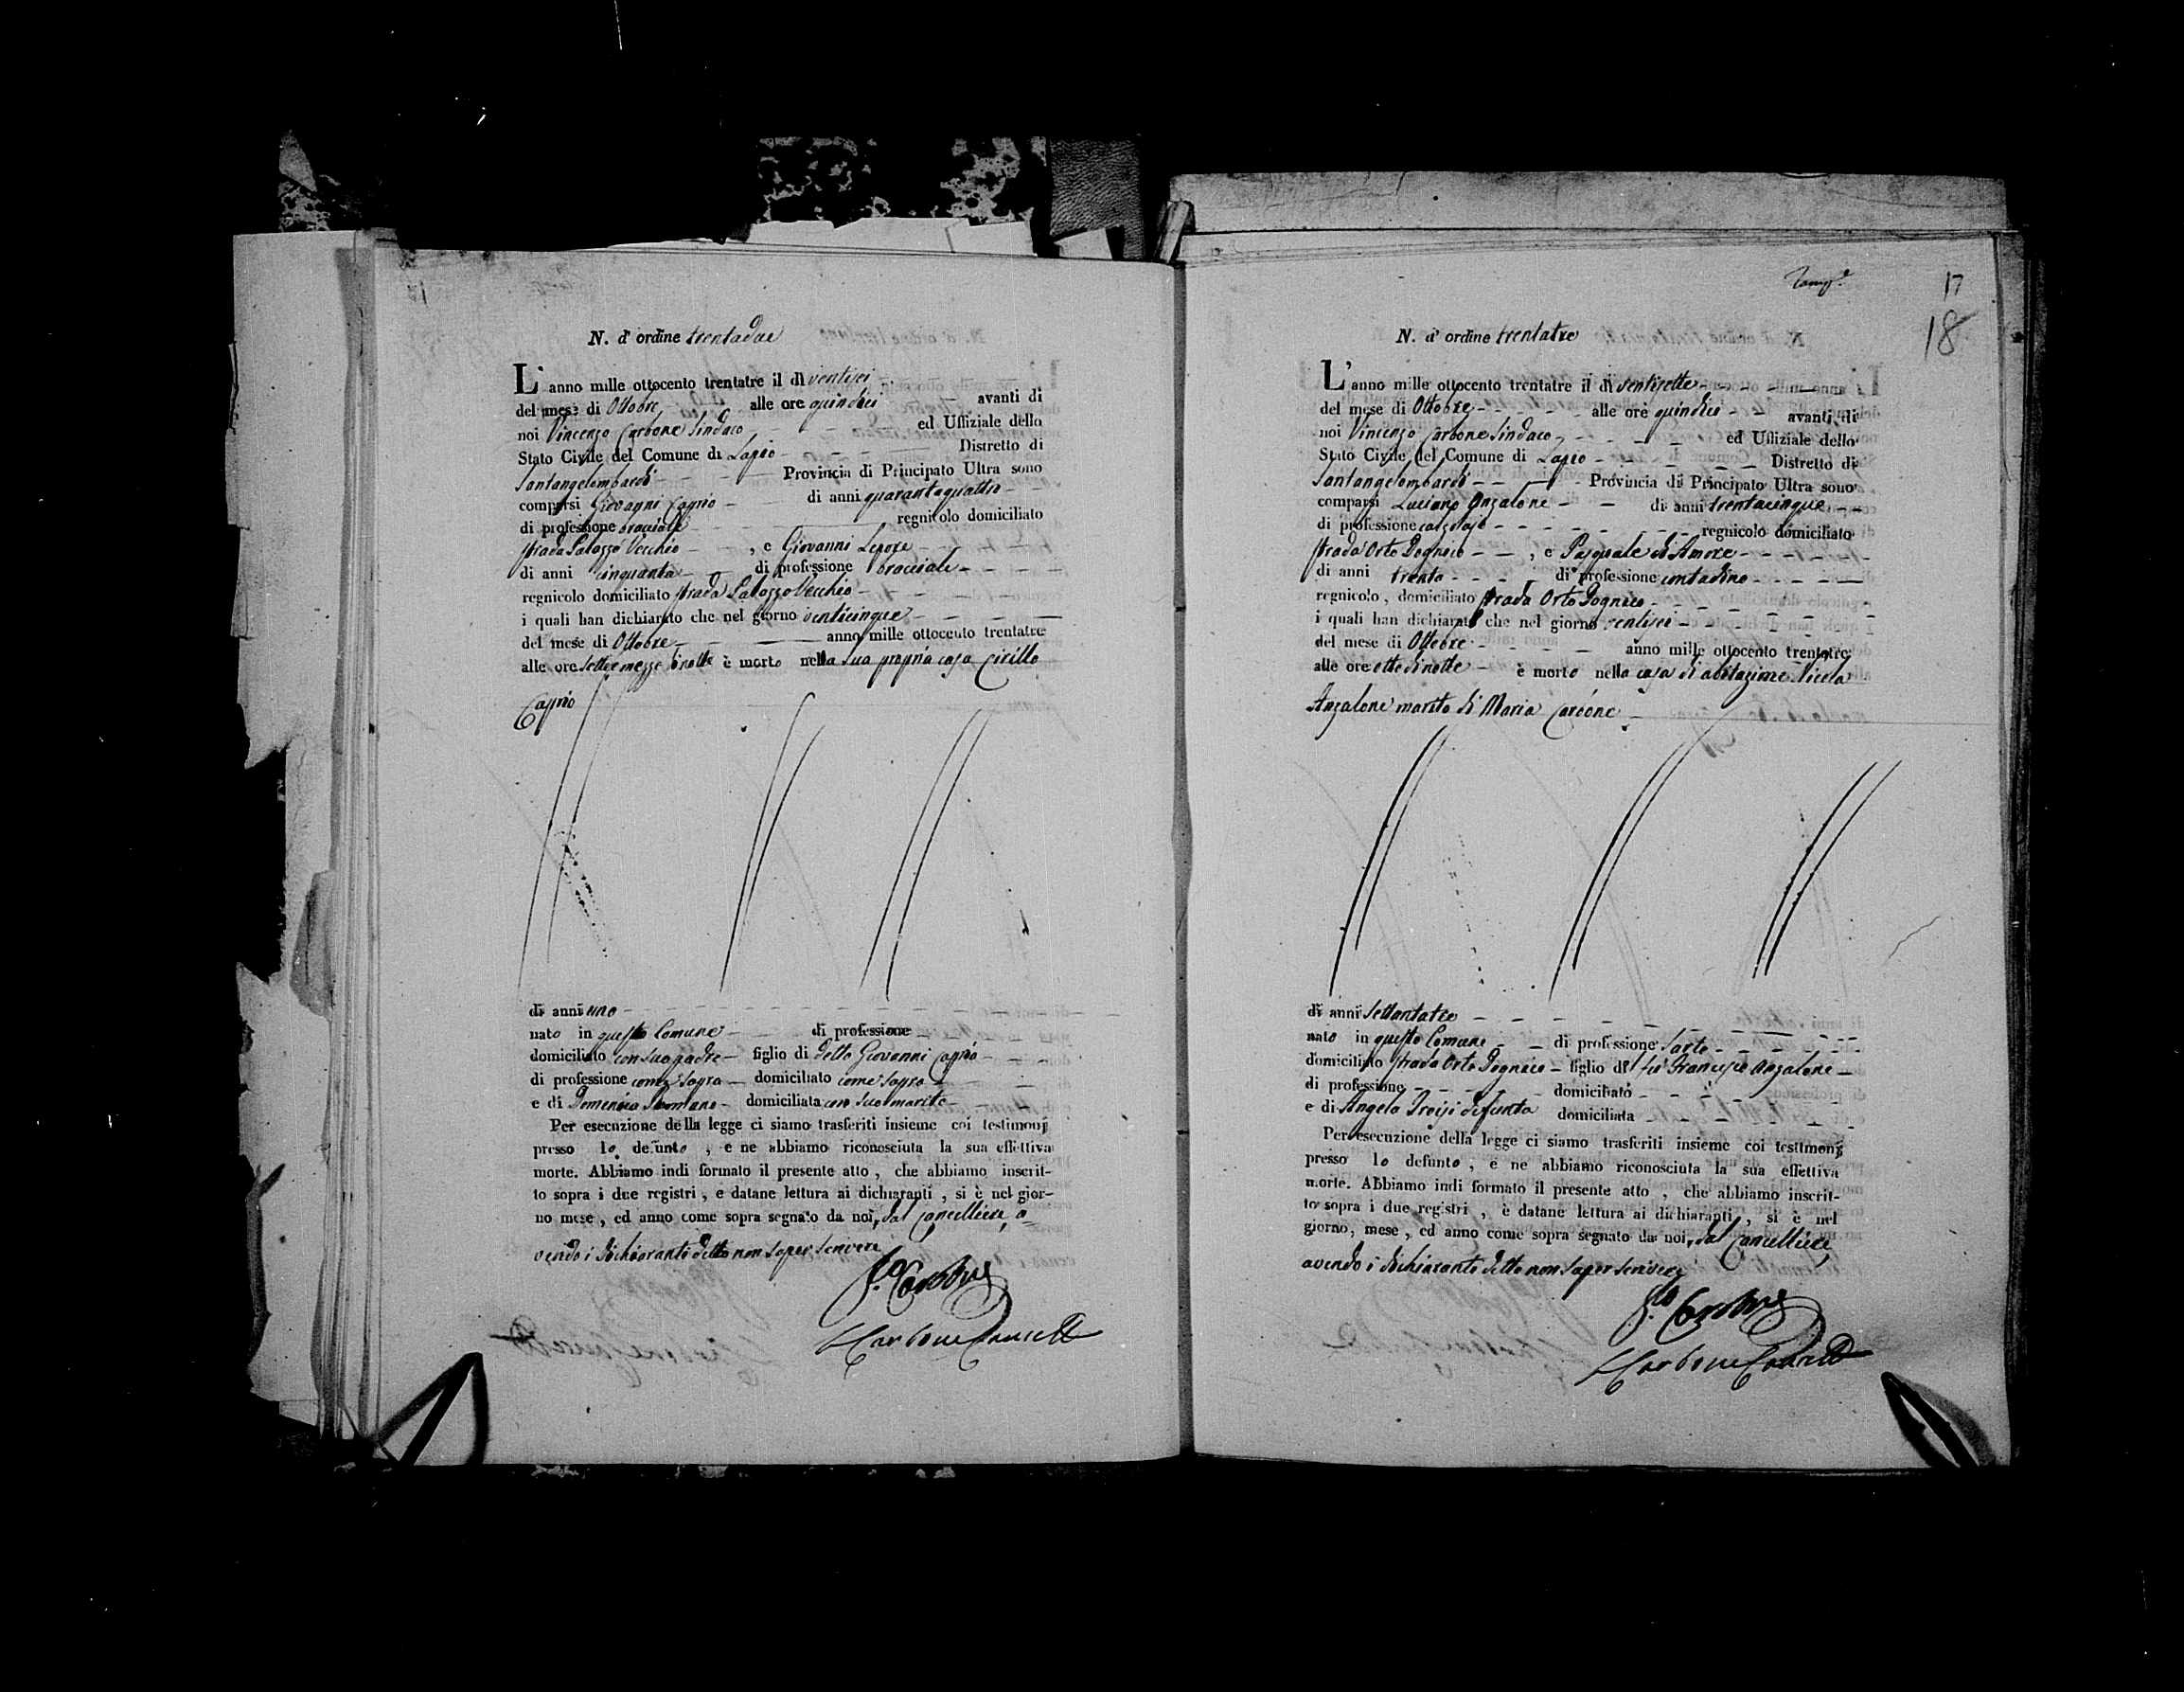 N. d' ordine trentadue
L' anno mille ottocento trentatre il dì ventisei
del mese di Ottobre alle ore quindici avanti di
noi Vincenzo Carbone Sindaco ed Uffiziale dello
Stato Civile del Comune di Lapio Distretto di
Santangelombardi Provincia di Principato Ultra sono
comparsi Giovanni Caprio di anni quarantaquattro
di professione bracciale regnicolo domiciliato
strada Palazzo Vecchio , e Giovanni Lepore
di anni cinquanta di professione bracciale
regnicolo domiciliato strada Palazzo Vecchio
i quali han dichiarato che nel giorno venticinque
del mese di Ottobre anno mille ottocento trentatre
alle ore sette e mezze di notte è morto nella sua propria casa Cirillo
Caprio
di anni uno
nato in questo Comune di professione
domiciliato con suo padre figlio di detto Giovanni Caprio
di professione come sopra domiciliato come sopra
e di Domenica Romano domiciliata con suo marito
Per esecuzione della legge ci siamo trasferiti insieme coi testimonj
presso lo defunto , e ne abbiamo riconosciuta la sua effettiva
morte. Abbiamo indi formato il presente atto , che abbiamo inscrit-
to sopra i due registri , e datane lettura ai dichiaranti , si è nel gior-
no mese , ed anno come sopra segnato da noi, dal Cancelliere, a-
vendo i dichiaranti detto non saper scrivere
Carbone
Carbone Cancell
17
18
N. d' ordine trentatre
L' anno mille ottocento trentatre il dì ventisette
del mese di Ottobre alle ore quindici avanti di
noi Vincenzo Carbone Sindaco ed Uffiziale dello
Stato Civile del Comune di Lapio Distretto di
Santangelombardi Provincia di Principato Ultra sono
comparsi Luciano Anzalone di anni trentacinque
di professione calzolajo regnicolo domiciliato
strada Orto Dognico , e Pasquale di Amore
di anni trenta di professione contadino
regnicolo , domiciliato strada Orto Dognico
i quali han dichiarato che nel giorno ventisei
del mese di Ottobre anno mille ottocento trentatre
alle ore otto di notte è morto nella casa di abitazione Nicola
Anzalone marito di Maria Carbone
di anni settantatre
nato in questo Comune di professione Sarto
domiciliato strada Orto Dognico figlio di fu Francesco Anzalone
di professione domiciliato
e di Angela Troisi defunta domiciliata
Per esecuzione della legge ci siamo trasferiti insieme coi testimonj
presso lo defunto , e ne abbiamo riconosciuta la sua effettiva
morte. Abbiamo indi formato il presente atto , che abbiamo inscrit-
to sopra i due registri , e datane lettura ai dichiaranti , si è nel
giorno, mese , ed anno come sopra segnato da noi, dal Cancelliere,
avendo i dichiaranti detto non saper scrivere
Carbone
Carbone Cancell